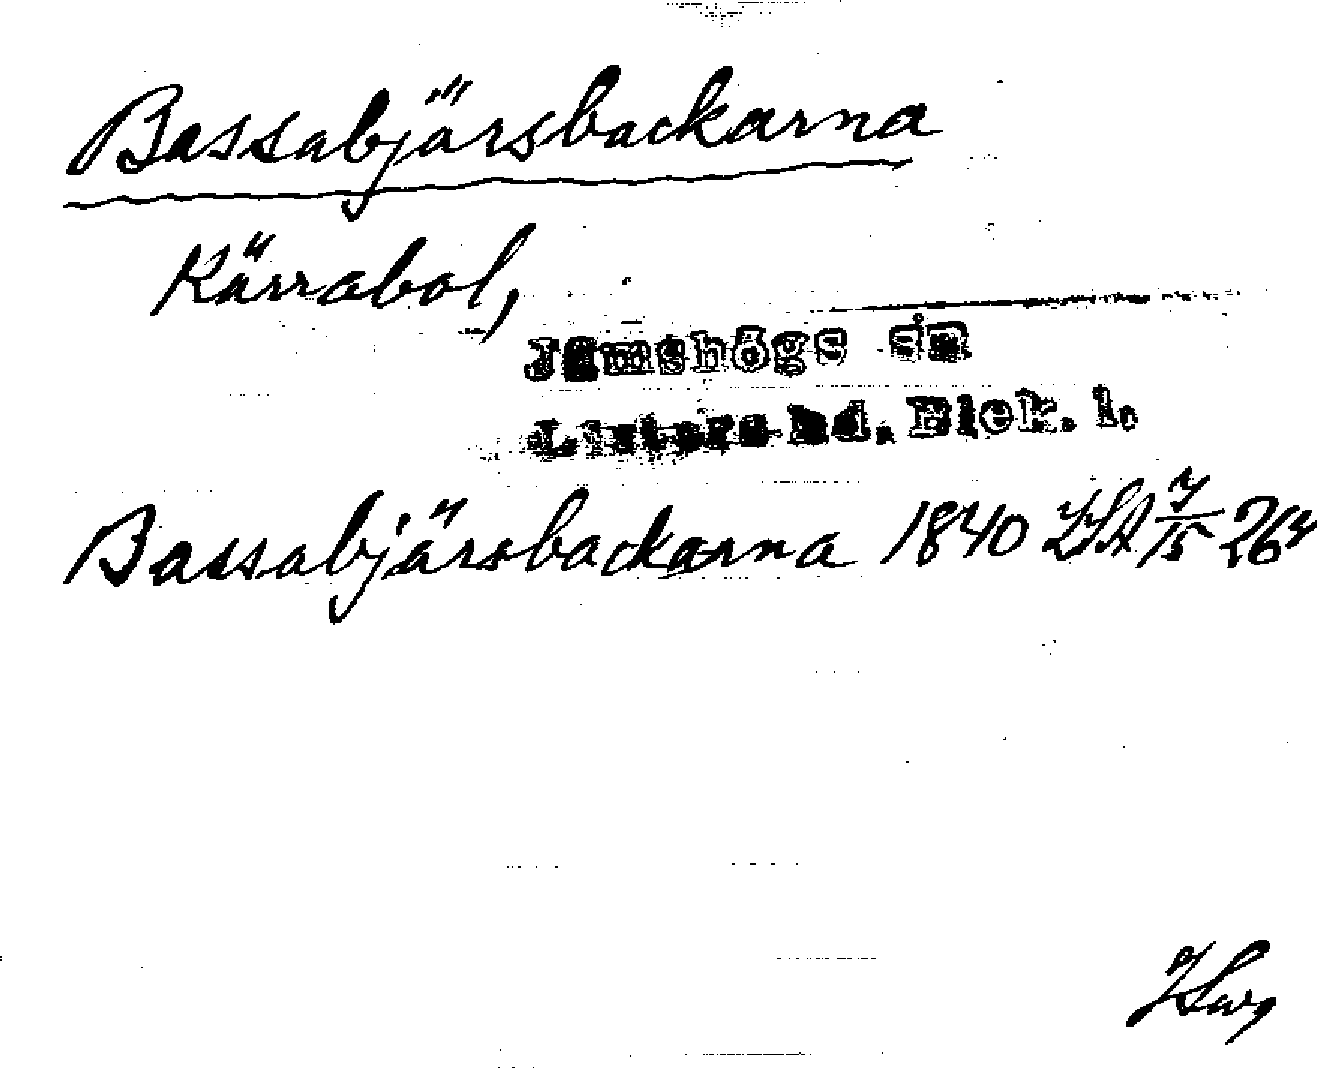 Bassabjärsbackarna
Kärrabol,
Jämshögs sn
Listers hd. Blek. l.
Bassabjärsbackarna 1840 LSA 7/15 264